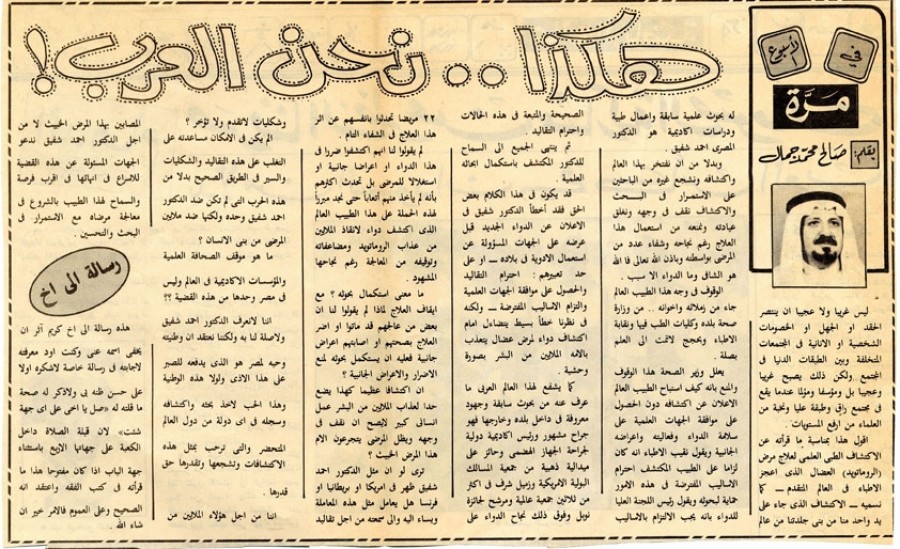 هكذا .. نحن العرب !
في
الأسبوع
مرّة
بقلم : صالح محمد جمال
ليس غريبا ولا عجيبا ان ينتصر
الحقد او الجهل او الخصومات
الشخصية او الانانية في المجتمعات
المتخلفة وبين الطبقات الدنيا فى
المجتمع ولكن ذلك يصبح غريبا
وعجيبا بل ومؤسفا ومؤلما عندما يقع
في مجتمع راق وطبقة عليا ونخبة من
العلماء من ارفع المستويات .
اقول هذا بمناسبة ما قرأته عن
الاكتشاف الطبى العلمى لعلاج مرض
(الروماتويد) العضال الذى اعجز
الاطباء فى العالم المتقدم ــ كما
نسميه ــ الاكتشاف الذى جاء على
يد واحد منا من بنى جلدتنا من عالم
له بحوث علمية سابقة واعمال طبية
ودراسات اكاديمية هو الدكتور
المصرى احمد شفيق .
وبدلا من ان نفتخر بهذا العالم
واكتشافه ونشجع غيره من الباحثين
على الاستمرار فى البحث
والاكتشاف نقف فى وجهه ونغلق
عيادته ونمنعه من استعمال هذا
العلاج رغم نجاحه وشفاء عدد من
المرضى بواسطته وباذن الله تعالى فا الله
هو الشافى وما الدواء الا سبب .
الوقوف فى وجه هذا الطبيب العالم
جاء من زملائه واخوانه .. من وزارة
صحة بلده وكليات الطب فيها ونقابة
الاطباء وبحجج لاتمت الى العلم
بصلة .
يعلل وزير الصحة هذا الوقوف
والمنع بانه كيف استباح الطبيب العالم
الاعلان عن اكتشافه دون الحصول
على موافقة الجهات العلمية على
سلامة الدواء وفعاليته واعراضه
الجانبية ويقول نقيب الاطباء انه كان
لزاما على الطبيب المكتشف احترام
الاساليب المفترضة فى هذه الامور
حماية لبحوثه ويقول رئيس اللجنة العليا
للدواء بانه يجب الالتزام بالاساليب
الصحيحة والمتبعة فى هذه الحالات
واحترام التقاليد .
ثم ينتهى الجميع الى السماح
للدكتور المكتشف باستكمال ابحاثه
العلمية .
قد يكون فى هذا الكلام بعض
الحق فقد أخطأ الدكتور شفيق فى
الاعلان عن الدواء الجديد قبل
عرضه على الجهات المسؤولة عن
استعمال الادوية فى بلاده ــ او على
حد تعبيرهم : احترام التقاليد
والحصول على موافقة الجهات العلمية
والتزام الاساليب المفترضة ــ ولكنه
فى نظرنا خطأ بسيط يتضاءل امام
اكتشاف دواء لمرض عضال يتعذب
بالامه الملايين من البشر بصورة
وحشية .
كما يشفع لهذا العالم العربى ما
عرف عنه من بحوث سابقة وجهود
معروفة فى داخل بلده وخارجها فهو
جراح مشهور ورئيس اكاديمية دولية
لجراحة الجهاز الهضمى وحائز على
ميدالية ذهبية من جمعية المسالك
البولية الامريكية وزميل شرف فى اكثر
من ثلاثين جمعية عالمية ومرشح لجائزة
نوبل وفوق ذلك نجاح الدواء على
٢٢ مريضا تحدثوا بانفسهم عن اثر
هذا العلاج فى الشفاء التام .
لم يقولوا لنا انهم اكتشفوا ضررا فى
هذا الدواء او اعراضا جانبية او
استغلالا للمرضى بل تحدث اكثرهم
بأنه لم يأخذ منهم أتعاباً حتى نجد مبررا
لهذه الحملة على هذا الطبيب العالم
الذى اكتشف دواء لانقاذ الملايين
من عذاب الروماتويد ومضاعفاته
وتوقيفه من المعالجة رغم نجاحها
المشهود .
ما معنى استكمال بحوثه ؟ مع
ايقاف العلاج لماذا لم يقولوا لنا ان
بعض من عالجهم قد ماتوا او اضر
العلاج بصحتهم او اصابتهم اعراض
جانبية فعليه ان يستكمل بحوثه لمنع
الاضرار والاعراض الجانبية ؟
ان اكتشافا عظيما كهذا يضع
حدا لعذاب الملايين من البشر عمل
انسانى كبير لايصح ان نقف فى
وجهه ويظل المرضى يتجرعون الام
هذا المرض الخبيث ؟
ترى لو ان مثل الدكتور احمد
شفيق ظهر فى امريكا او بريطانيا او
فرنسا هل يعامل مثل هذه المعاملة
ويساء اليه والى سمعته من اجل تقاليد
وشكليات لاتقدم ولا تؤخر ؟
الم يكن فى الامكان مساعدته على
التغلب على هذه التقاليد والشكليات
والسير فى الطريق الصحيح بدلا من
هذه الحرب التى لم تكن ضد الدكتور
احمد شفيق وحده ولكنها ضد ملايين
المرضى من بنى الانسان ؟
ما هو موقف الصحافة العلمية
والمؤسسات الاكاديمية فى العالم وليس
فى مصر وحدها من هذه القضية ؟؟
اننا لانعرف الدكتور احمد شفيق
ولاصلة لنا به ولكننا نعتقد ان وطنيته
وحبه لمصر هو الذى يدفعه للصبر
على هذا الاذى ولولا هذه الوطنية
وهذا الحب لاخذ بحثه واكتشافه
وسجله فى اى دولة من دول العالم
المتحضر والتى ترحب بمثل هذه
الاكتشافات وتشجعها وتقدرها حق
قدرها .
اننا من اجل هؤلاء الملايين من
المصابين بهذا المرض الخبيث لا من
اجل الدكتور احمد شفيق ندعو
الجهات المسئولة عن هذه القضية
للاسراع فى انهائها فى اقرب فرصة
والسماح لهذا الطبيب بالشروع فى
معالجة مرضاه مع الاستمرار فى
البحث والتحسين .
رسالة الى اخ
هذه رسالة الى اخ كريم آثر ان
يخفى اسمه عنى وكنت اود معرفته
لاجابته فى رسالة خاصة لاشكره اولا
على حسن ظنه بى ولاذكر له صحة
ما قلته له «صل يا اخى على اى جهة
شئت» لان قبلة الصلاة داخل
الكعبة على جهاتها الاربع باستثناء
جهة الباب اذا كان مفتوحا هذا ما
قرأته فى كتب الفقه واعتقد انه
الصحيح وعلى العموم فالامر خير ان
شاء الله .